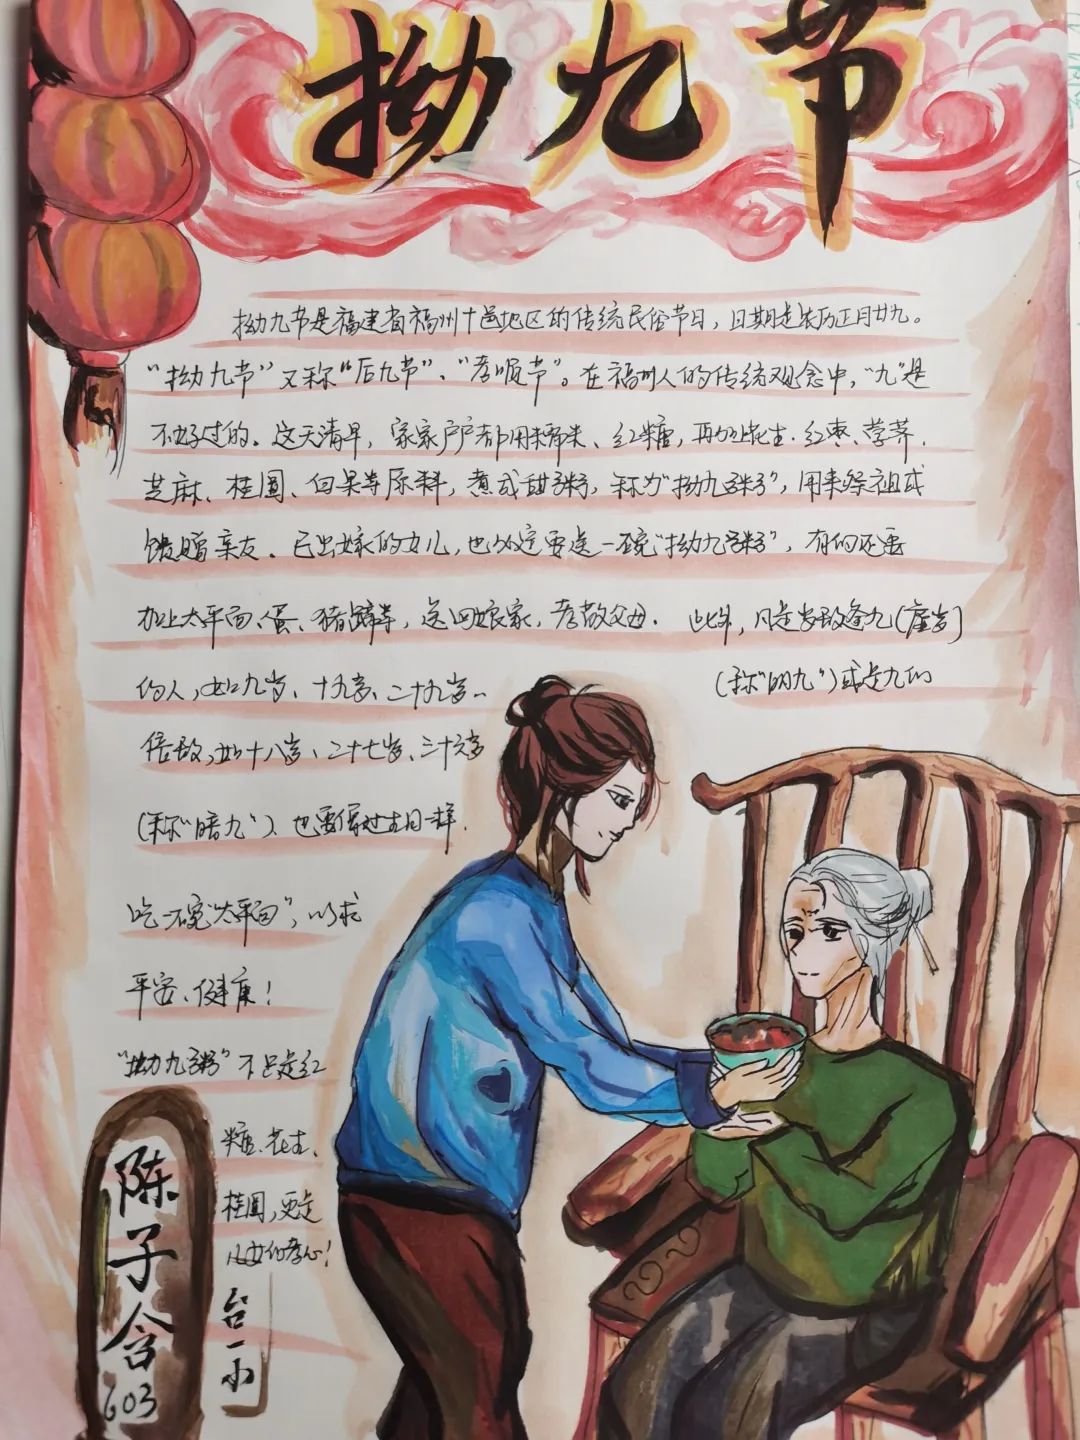 拗九节
拗九节是福建省福州十邑地区的传统民俗节日，日期是农历正月廿九。
“拗九节”又称“后九节”、“孝顺节”。在福州人的传统观念中，“九”是
不好过的。这天清早，家家户户都用糯米、红糖，再加上花生、红枣、荸荠、
芝麻、桂圆、白果等原料，煮成甜粥，称为“拗九粥”，用来祭祖或
馈赠亲友。已出嫁的女儿，也必定要送一碗“拗九粥”，有的还要
加上太平面、蛋、猪蹄等，送回娘家，孝敬父母。此外，凡是岁数逢九(虚岁)
的人，如九岁、十九岁、二十九岁、
(称“明九”)或是九的
倍数，如十八岁、二十七岁、三十六岁
(称“暗九”)、也要像过生日一样，
吃一碗“太平面”，以求
平安、健康！
“拗九粥”不只是红
糖、花生、
桂圆，更是
儿女的孝心！
陈子含
603
台一小